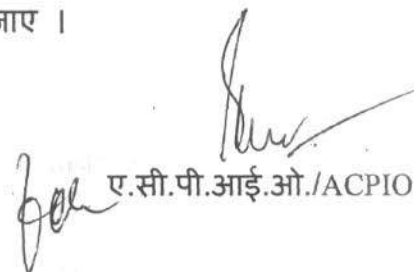 जाए ।
ए.सी.पी.आई.ओ./ACPIO